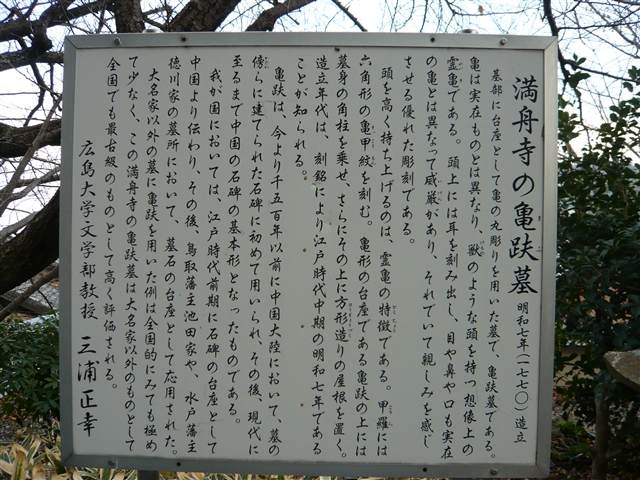 満舟寺の亀趺墓 明和七年(一七七〇)造立
基部に台座として亀の丸彫りを用いた墓で、亀趺墓である。
亀は実在ものとは異なり、獣のような頭を持つ想像上の
霊亀である。頭上には耳を刻み出し、目や鼻や口も実在
の亀とは異なって威厳があり、それでいて親しみを感じ
させる優れた彫刻である。
頭を高く持ち上げるのは、霊亀の特徴である。甲羅には
六角形の亀甲紋を刻む。亀形の台座である亀趺の上には
墓身の角柱を乗せ、さらにその上に方形造りの屋根を置く。
造立年代は、刻銘により江戸時代中期の明和七年である
ことが知られる。
亀趺は、今より千五百年以前に中国大陸において、墓の
傍らに建てられた石碑に初めて用いられ、その後、現代に
至るまで中国の石碑の基本形となったものである。
我が国においては、江戸時代前期に石碑の台座として
中国より伝わり、その後、鳥取藩主池田家や、水戸藩主
徳川家の墓所において、墓石の台座として応用された。
大名家以外の墓に亀趺を用いた例は全国的にみても極め
て少なく、この満舟寺の亀趺墓は大名家以外のものとして
全国でも最古級のものとして高く評価される。
広島大学文学部教授 三浦正幸